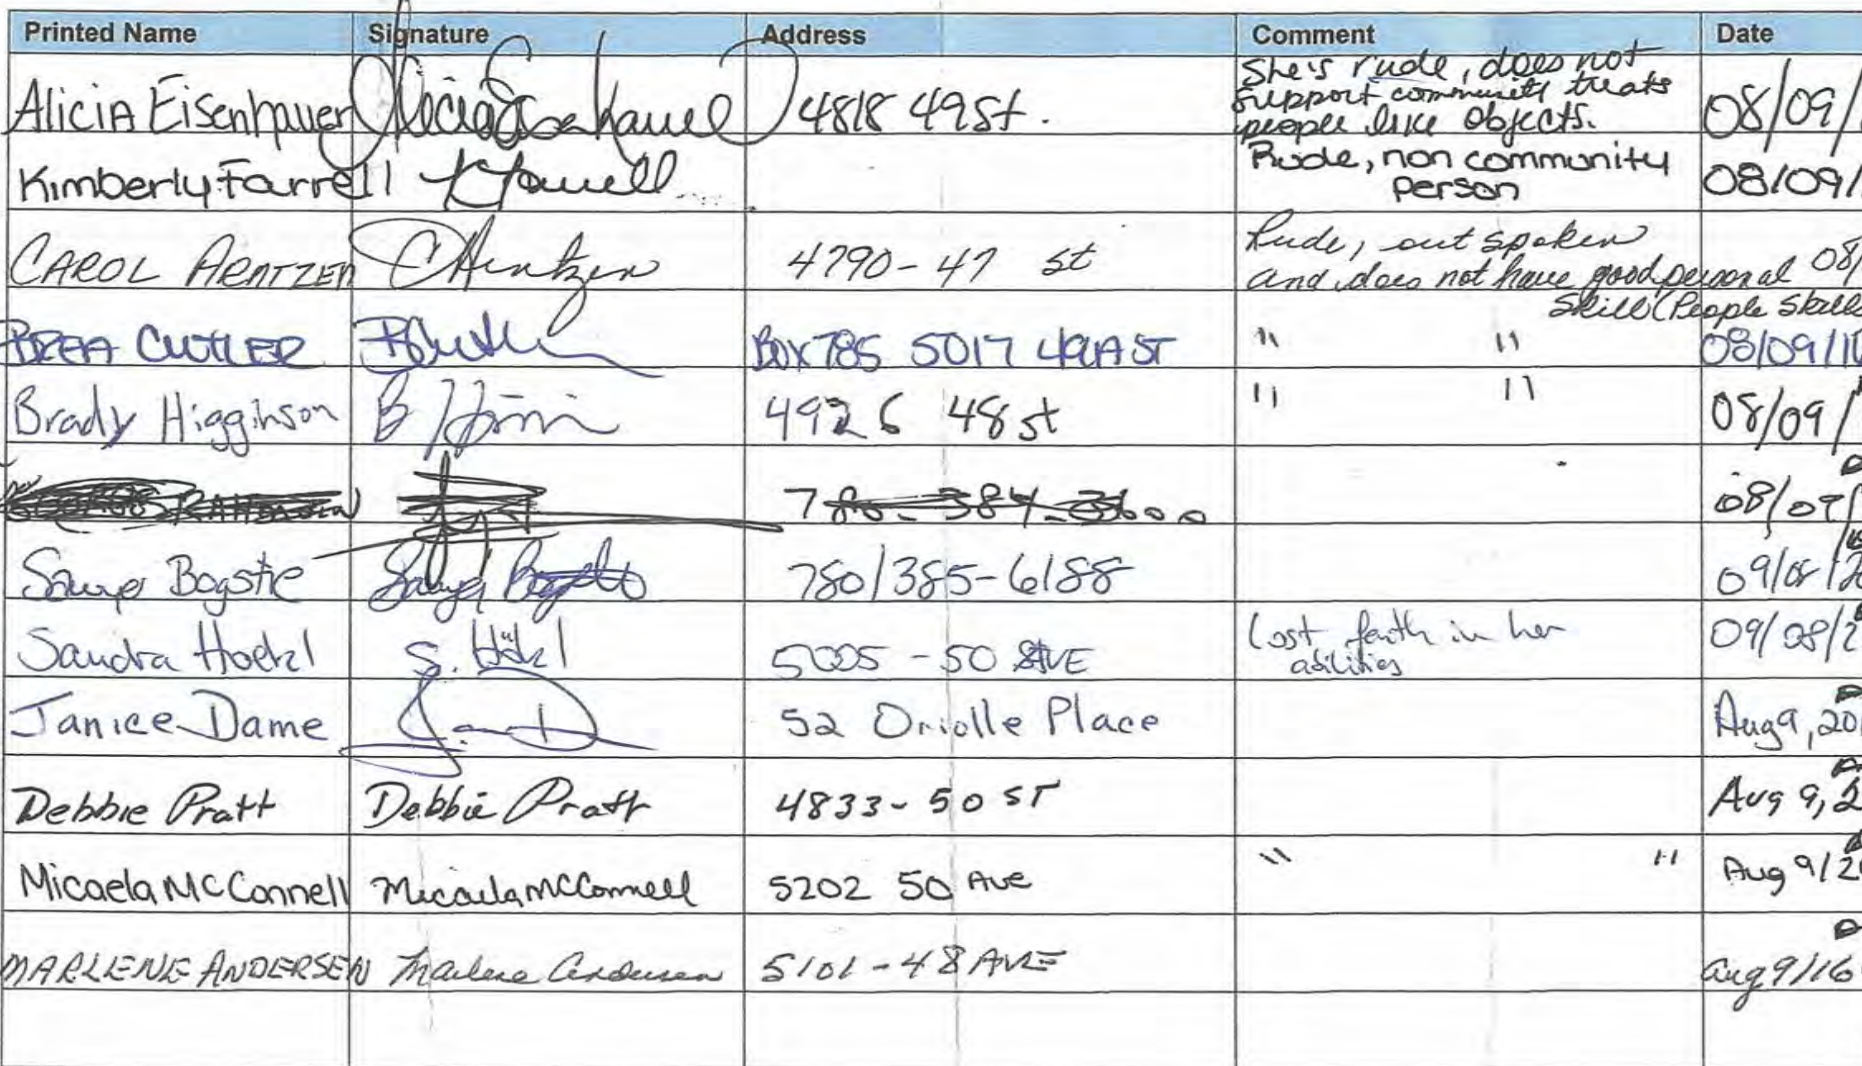 Printed Name Signature Address Comment Date
Alicia Eisenhauer Alicia Eisenhauer 4818 49 St. She's rude, does not support community treats people like objects. 08/09/
Kimberly Farrell K Farrell Rude, non community person 08/09/
CAROL ARNTZEN C Arntzen 4790-47 st Rude, out spoken and does not have good personal skill (People Skills 08/
BREA CUTLER BOX 785 5017 49A ST " " 08/09/16
Brady Higginson B 4926 48 st " " 08/09/
780-384-3600 08/09/
Bogstie 780/385-6188 09/08/
Sandra Hoelzl S. 5005-50 AVE Lost faith in her abilities 09/08/2
Janice Dame 52 Oriolle Place Aug 9, 20
Debbie Pratt Debbie Pratt 4833-50 ST Aug 9, 2
Micaela McConnell Micaela McConnell 5202 50 Ave " " Aug 9/2
MARLENE ANDERSEN Marlene Andersen 5101-48 AVE Aug 9/16